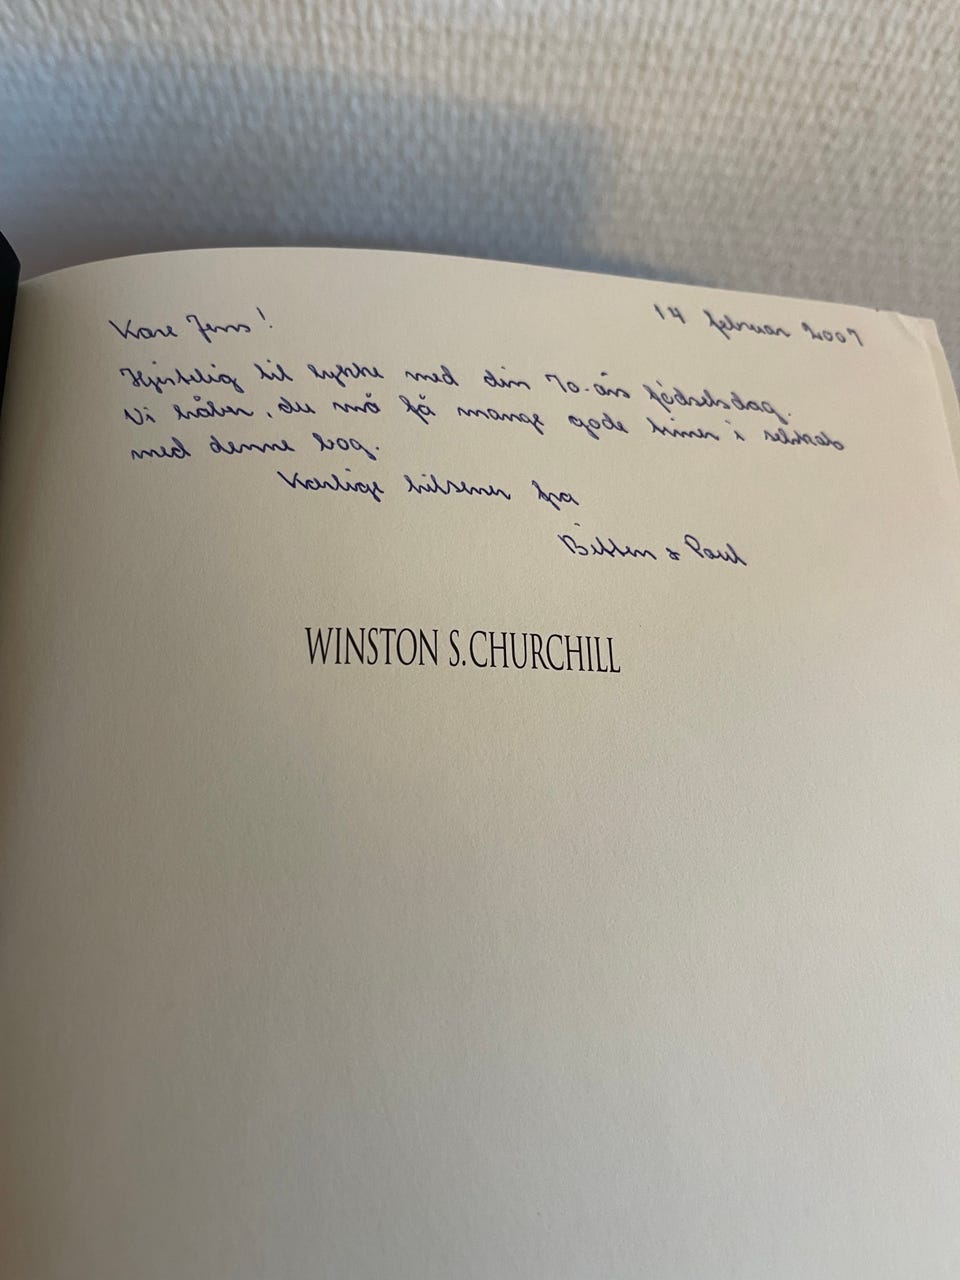 Kære Jens!
14 februar 2007
Hjertelig til lykke med din 70-års fødselsdag.
Vi håber, du må få mange gode timer i selskab
med denne bog.
Kærlige hilsener fra
Bitten & Poul
WINSTON S. CHURCHILL